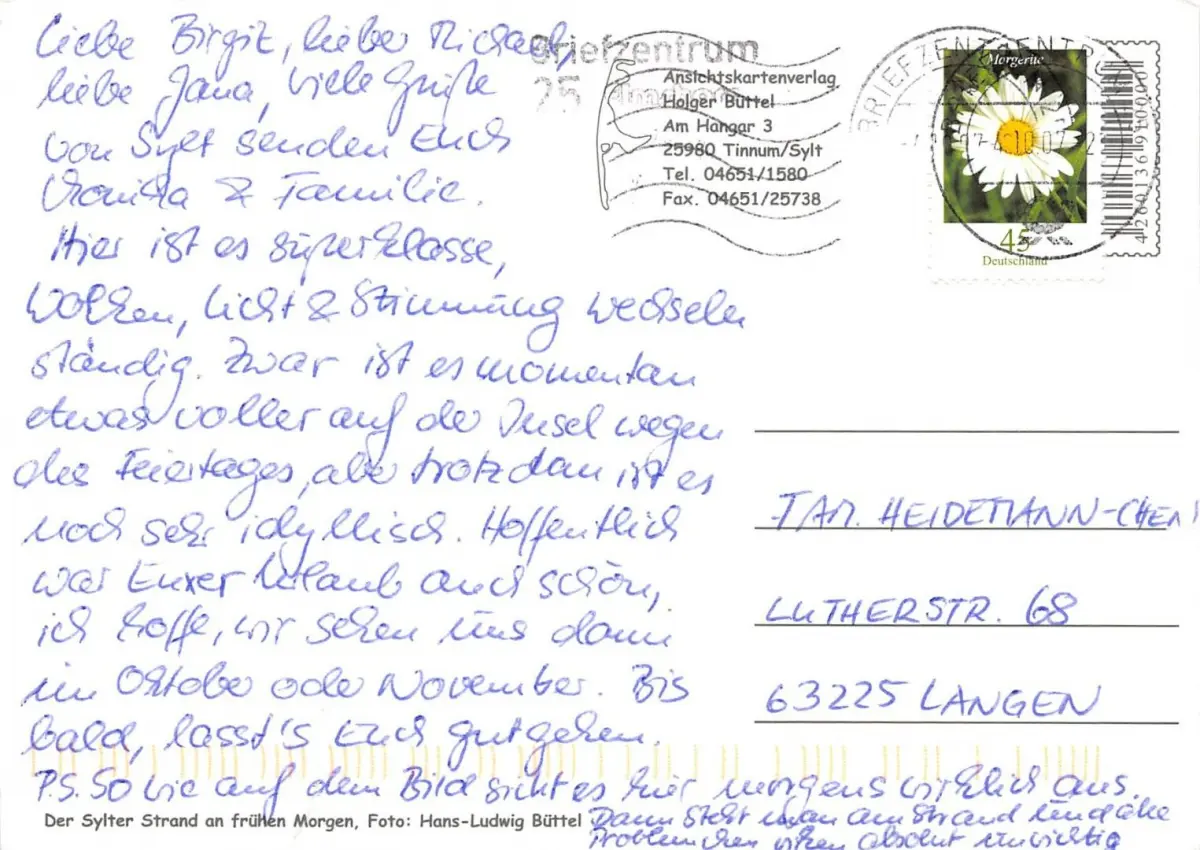 Liebe Birgit, lieber Michael,
liebe Jana, viele Grüße
von Sylt senden Euch
& Familie.
Hier ist es superklasse,
Wolken, Licht & Stimmung wechseln
ständig. Zwar ist es momentan
etwas voller auf der Insel wegen
des Feiertages, aber trotzdem ist es
noch sehr idyllisch. Hoffentlich
war Euer Urlaub auch schön,
ich hoffe, wir sehen uns dann
im Oktober oder November. Bis
bald, lasst's Euch gutgehen.
P.S. So wie auf dem Bild sieht es hier morgens wirklich aus.
Dann steht man am Strand und alle
Problemchen wirken absolut unwichtig
Der Sylter Strand an frühen Morgen, Foto: Hans-Ludwig Büttel
Briefzentrum
25
Ansichtskartenverlag
Holger Büttel
Am Hangar 3
25980 Tinnum/Sylt
Tel. 04651/1580
Fax. 04651/25738
BRIEFZENTRUM
Margerite
45
Deutschland
FAM. HEIDEMANN-
LUTHERSTR. 68
63225 LANGEN